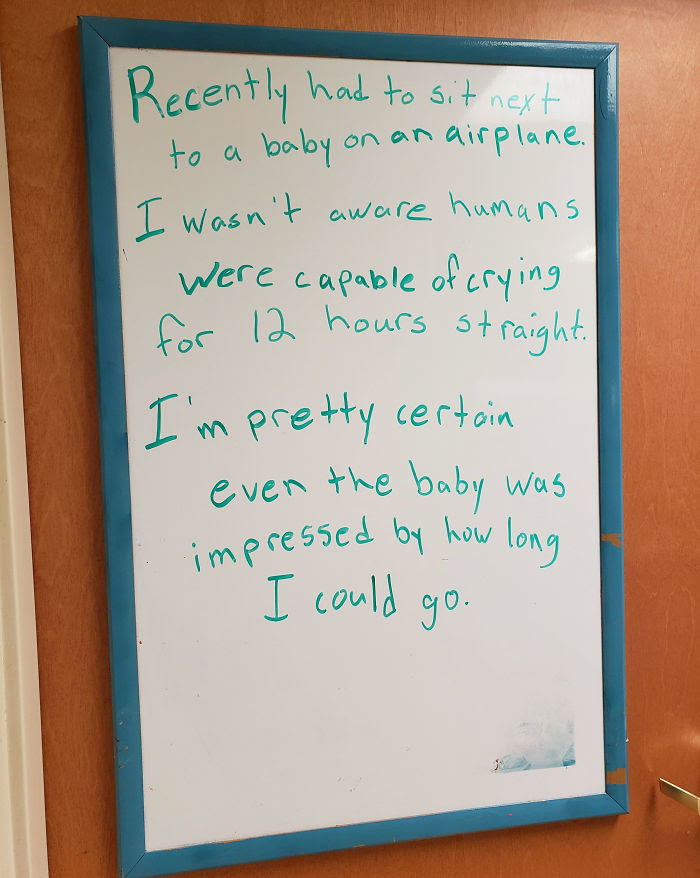 Recently had to sit next
to a baby on an airplane.
I wasn't aware humans
were capable of crying
for 12 hours straight.
I'm pretty certain
even the baby was
impressed by how long
I could go.